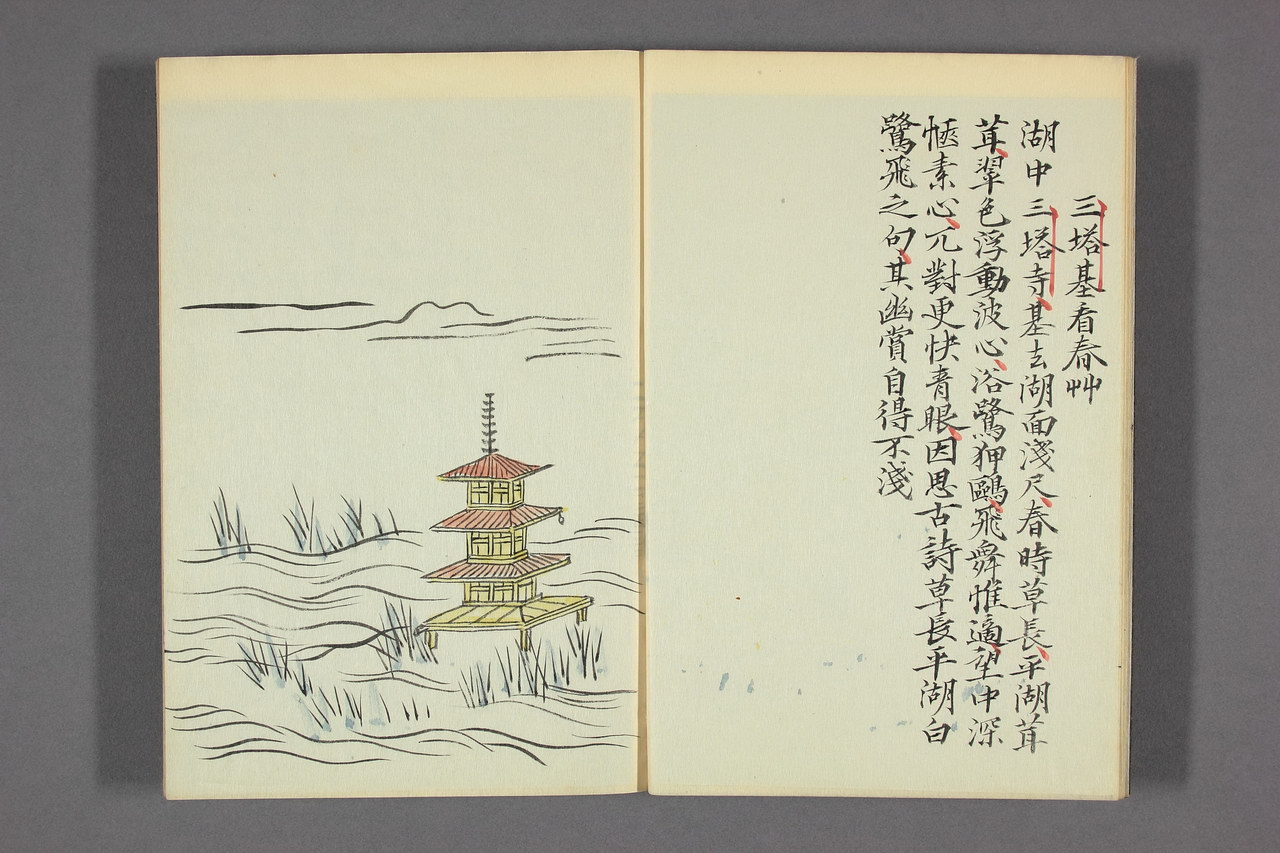 三塔基看春艸
湖中三塔寺基去湖面淺尺春時草長平湖茸
茸翠色浮動波心浴鷺狎鷗飛舞惟適望中深
愜素心兀對更快青眼因思古詩草長平湖白
鷺飛之句其幽賞自得不淺